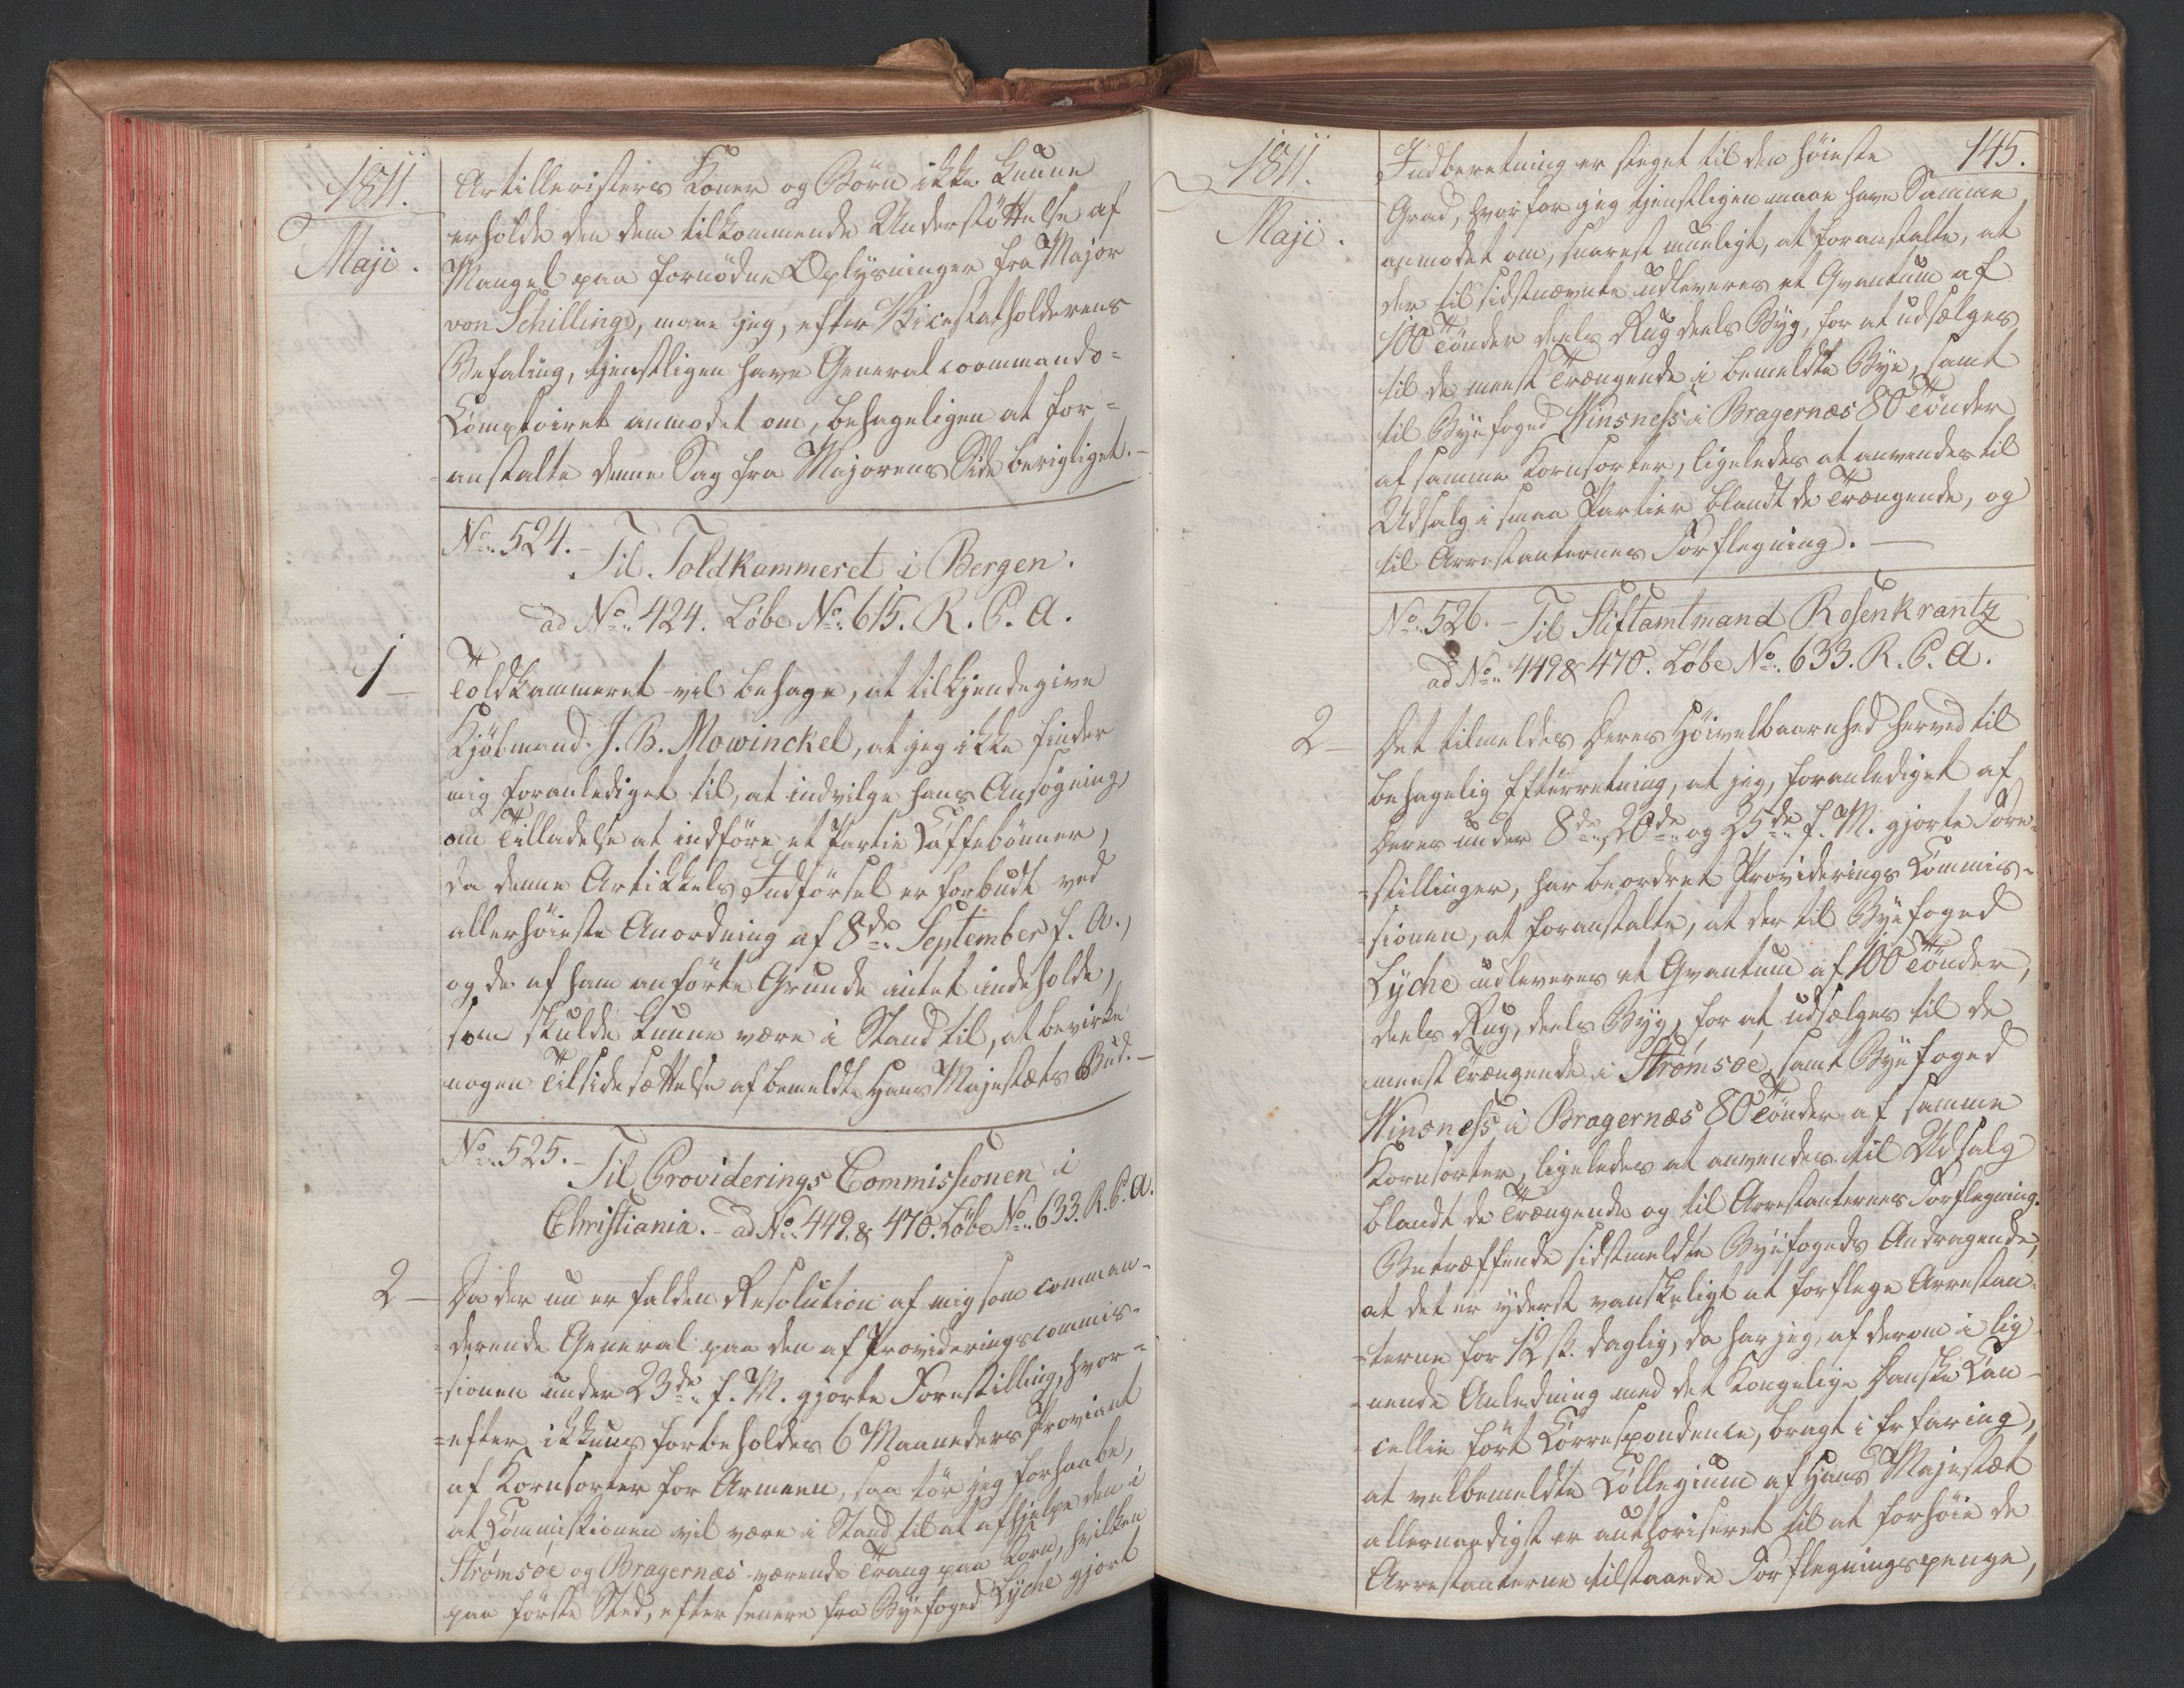 1811.
Maji.
Artilleristers Koner og Börn ikke kunne
erholde den dem tilkommende Understöttelse af
Mangel paa fornödne Oplysninger fra Major
von Schilling, maae jeg, efter Vicestatholderens
Befaling, tjenstligen have Generalcoommando-
Comptoiret anmodet om, behageligen at for-
anstalte denne Sag fra Majorens Side berigtiget. -
No. 524. - Til Toldkammeret i Bergen.
ad No. 424. Löbe No. 615. R. P. A.
1 -
Toldkammeret vil behage, at tilkjendegive
Kjöbmand J. B. Mowinckel, at jeg ikke finder
mig foranlediget til, at indvilge hans Ansögning
om Tilladelse at indföre et Partie Caffebönner,
da denne Artikkels Indförsel er forbudt ved
allerhöieste Anordning af 8de September f. A.,
og de af ham anförte Grunde intet indeholde,
som skulde kunne være i Stand til, at bevirke
nogen Tilsidesættelse af bemeldte Hans Majestæts Bud. -
No. 525. - Til Providerings Commissionen i
Christiania. - ad No. 449. & 470. Löbe No. 633. R. P. A.
2 -
Da der nu er falden Resolution af mig som comman-
=derende General paa den af Provideringscommis-
=sionen under 23de f. M. gjorte Forestilling, hvor-
=efter ikkuns forbeholdes 6 Maaneders Proviant
af Kornsorter for Armeen, saa tör jeg forhaabe,
at Commissionen vil være i Stand til at afhjelpe den i
Strömsöe og Bragernæs værende Trang paa Korn, hvilken
paa förste Sted, efter senere fra Byefoged Lyche gjort
1811.
Maji.
145.
Indberetning er steget til den höieste
Grad, hvorfor jeg tjenstligen maae have Samme
anmodet om, snarest mueligt, at foranstalte, at
der til sidstnævnte udleveres et Qvantum af
100 Tönder deels Rug deels Byg, for at udsælges
til de meest Trængende i bemeldte Bye, samt
til Byefoged Winsness i Bragernæs 80 Tönder
af samme Kornsorter, ligeledes at anvendes til
Udsalg i smaa Partier blandt de Trængende, og
til Arrestanternes Forflegning. -
No. 526. - Til Stiftamtmand Rosenkrantz
ad No. 449 & 470. Löbe No. 633. R. P. A.
2 -
Det tilmeldes Deres Höivelbaarnhed herved til
behagelig Efterretning, at jeg, foranlediget af
Deres under 8de, 20de og 25de f. M. gjorte Fore-
=stillinger, har beordret Providerings Commis-
=sionen, at foranstalte, at der til Byefoged
Lyche udleveres et Qvantum af 100 Tönder,
deels Rug, deels Byg, for at udsælges til de
meest Trængende i Strömsöe, samt Byefoged
Winsness i Bragernæs 80 Tönder af samme
Kornsorter, ligeledes at anvendes til Udsalg
blandt de Trængende og til Arrestanternes Forflegning.
Betræffende sidstmeldte Byefogeds Andragende,
at det er yderst vanskeligt at forflege Arrestan-
=terne for 12 ß. daglig, da har jeg, af derom i lig-
=nende Anledning med det Kongelige Danske Can-
cellie fört Correspondence, bragt i Erfaring,
at velbemeldte Collegium af Hans Majestæt
allernaadigst er authoriseret til at forhöie de
Arrestanterne tilstaaede Forflegningspenge,